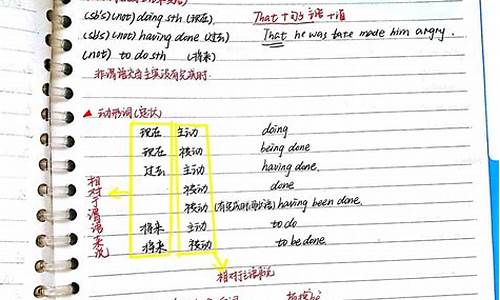 (sb's)(not) doing sth (现在) That + 句子 主语 + 谓
(sb's)(not) having done (过去) That he was late made him angry.
(not) to do sth (将来)
非谓语充当主语没有完成时.
▲ 动形词 (定状)
现在 主动 doing
现在 被动 being done
过去 主动 having done.
被动 done
被动 having been done.
将来 主动 to do
将来 被动 to be done.
相对于谓语来说
相对主语来说